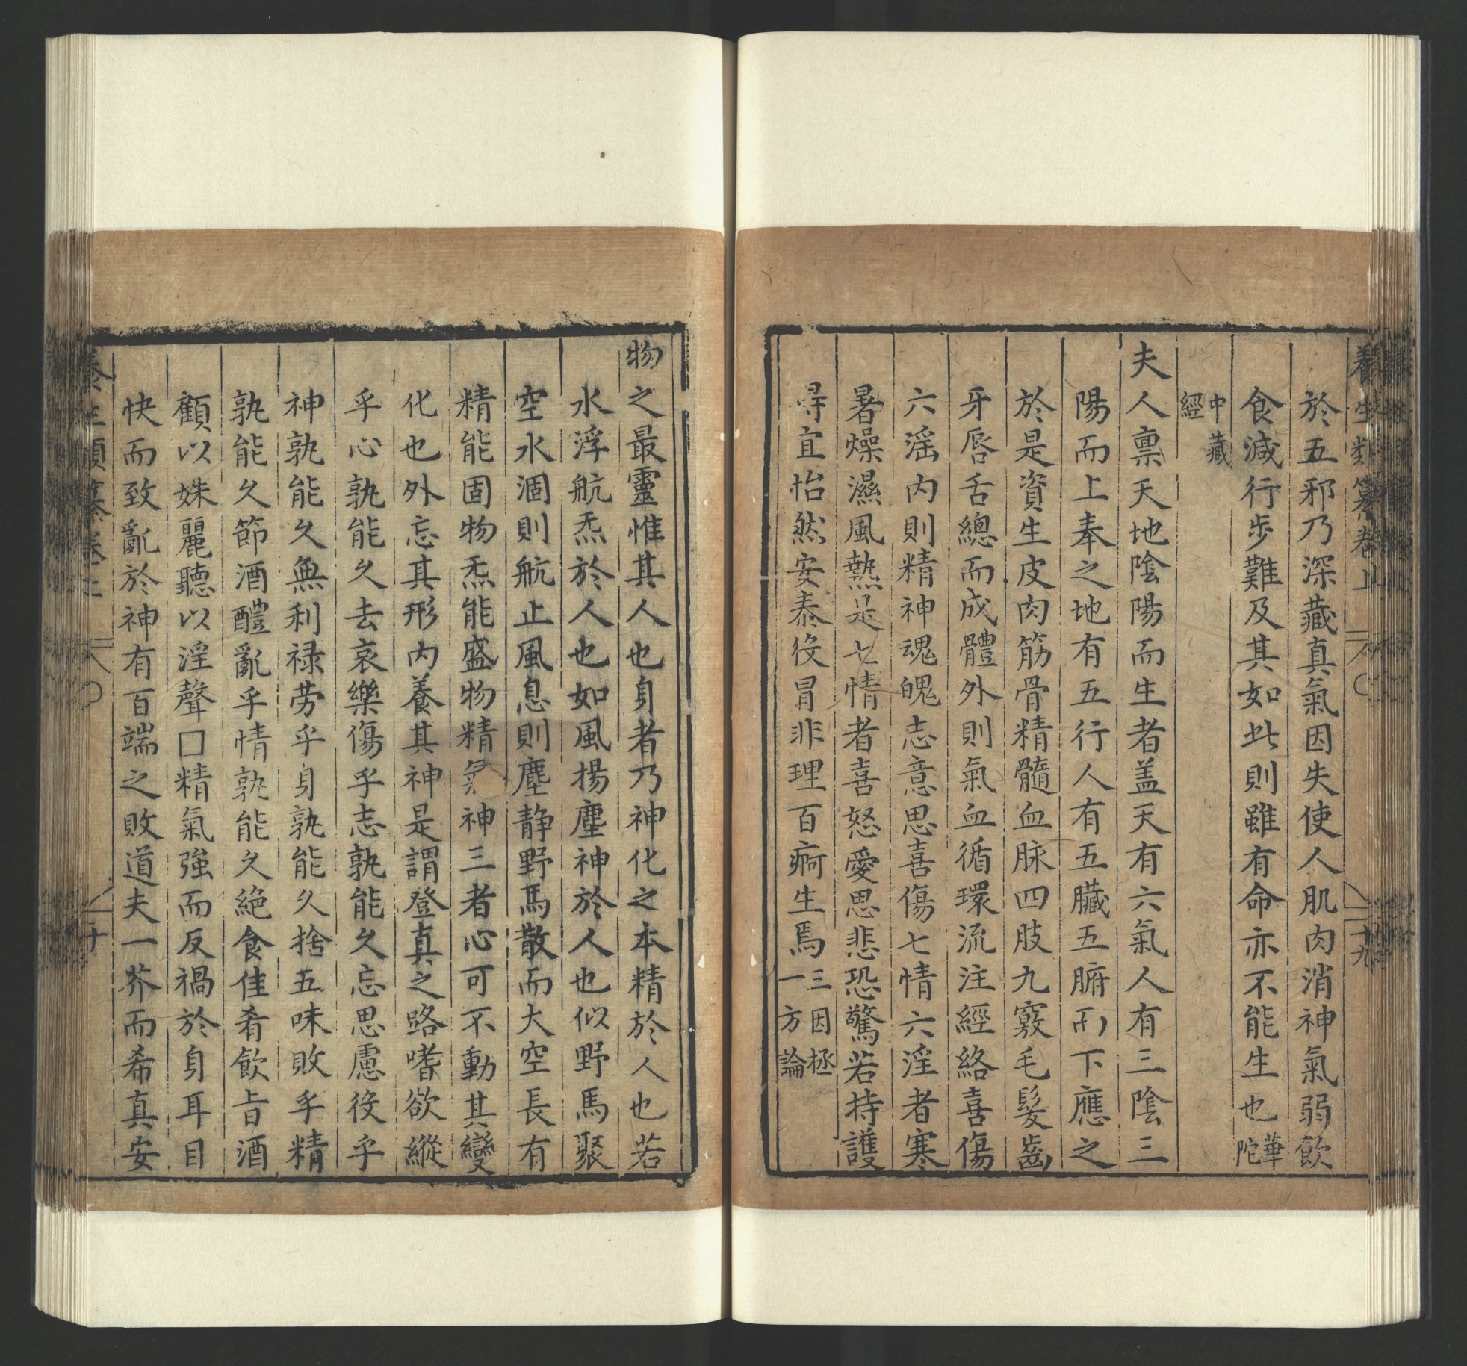 養生類纂卷上
十九
於五邪乃深藏真氣因失使人肌肉消神氣弱飲
食減行步難及其如此則雖有命亦不能生也華陀
中藏經
夫人禀天地陰陽而生者盖天有六氣人有三陰三
陽而上奉之地有五行人有五臟五腑而下應之
於是資生皮肉筋骨精髓血脉四肢九竅毛髮齒
牙唇舌總而成體外則氣血循環流注經絡喜傷
六滛内則精神魂魄志意思喜傷七情六淫者寒
暑燥濕風熱是七情者喜怒愛思悲恐驚若持護
得宜怡然安泰役冒非理百痾生焉三因極一方論
物之最靈惟其人也身者乃神化之本精於人也若
水浮航炁於人也如風揚塵神於人也似野馬聚
空水涸則航止風息則塵静野馬散而大空長有
精能固物炁能盛物精氣神三者心可不動其變
化也外忘其形内養其神是謂登真之路嗜欲縱
乎心孰能久去哀樂傷乎志孰能久忘思慮役乎
神孰能久無利禄劳乎身孰能久捨五味敗乎精
孰能久節酒醴亂乎情孰能久絶食佳肴飲旨酒
顧以姝麗聽以淫聲口精氣強而反禍於身耳目
快而致亂於神有百端之敗道夫一芥而希真安
養生類纂卷上
二十